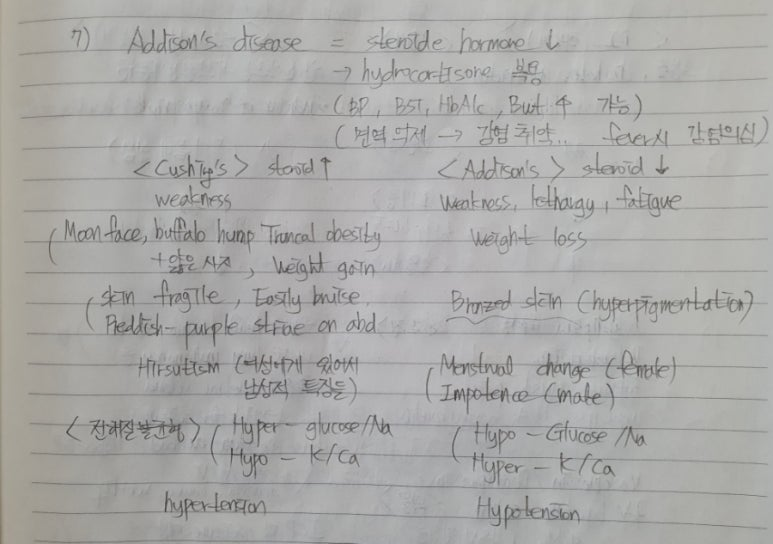 7) Addison's disease = steroide hormone ↓
→ hydrocortisone 복용
(BP, BST, HbA1c, But ↑ 가능)
(면역 억제 → 감염 취약.. fever시 감염의심)
<Cushing's> steroid ↑ <Addison's> steroid ↓
weakness Weakness, lethargy, fatigue
(Moon face, buffalo hump Truncal obesity Weight loss
+ 얇은 사지, Weight gain
(skin fragile, Easily bruise. Bronzed skin (hyperpigmentation)
Reddish- purple striae on abd
Hirsutism (여성에게 있어서 (Menstrual change (female)
남성적 특징들) Impotence (male)
<전해질불균형> (Hyper - glucose/Na (Hypo - Glucose/Na
Hypo - K/Ca Hyper - K/Ca
hypertension Hypotension